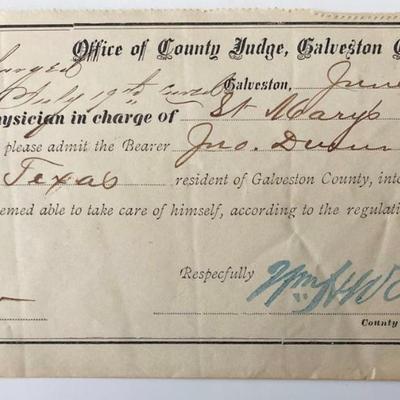 Office of County Judge, Galveston C
July 19th
Galveston, June
hysician in charge of St Marys
please admit the Bearer Jno. Dunn
Texas resident of Galveston County, int
emed able to take care of himself, according to the regulati
Respecfully Wm H
County